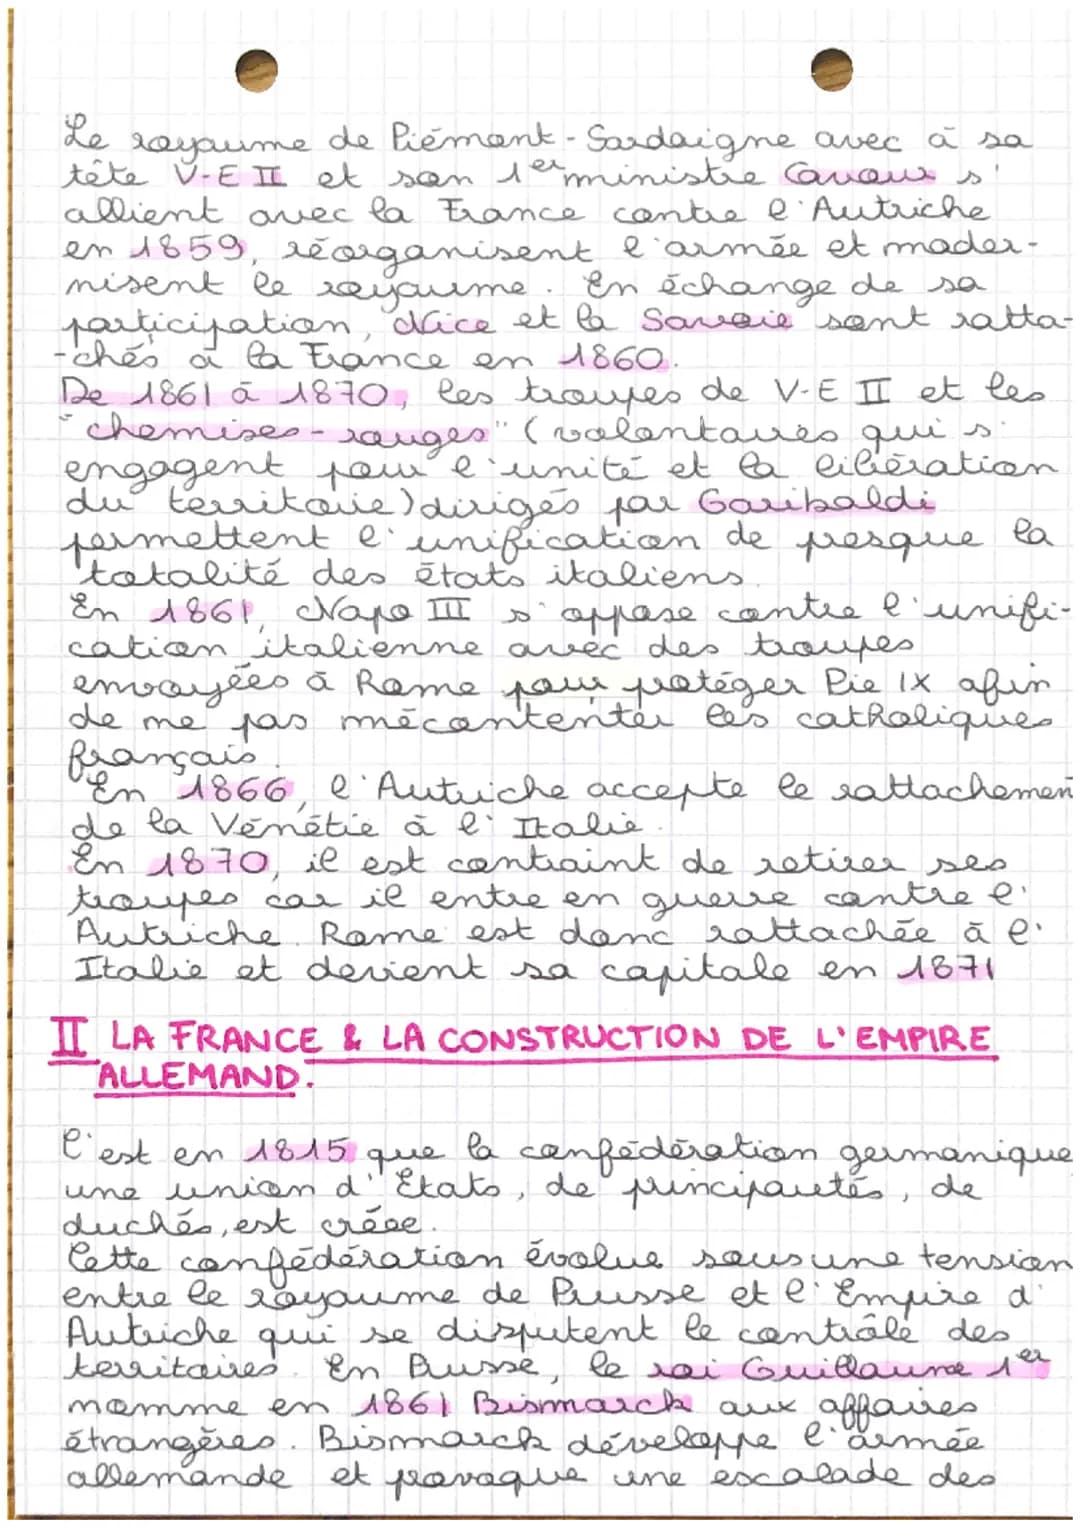 Le royaume de Piémont-Sardaigne avec à sa
tête V-E II et son 1er ministre Cavour s'
allient avec la France contre l'Autriche
en 1859, réorganisent l'armée et moder-
nisent le royaume. En échange de sa
participation, Nice et la Savoie sont ratta-
-chés à la France en 1860.
De 1861 à 1870, les troupes de V-E II et les
"chemises-rouges" (volontaires qui s'
engagent pour l'unité et la libération
du territoire) dirigés par Garibaldi
permettent l'unification de presque la
totalité des états italiens.
En 1861, Napo III s'oppose contre l'unifi-
cation italienne avec des troupes
envoyées à Rome pour protéger Pie IX afin
de ne pas mécontenter les catholiques
français.
En 1866, l'Autriche accepte le rattachement
de la Vénétie à l'Italie.
En 1870, il est contraint de retirer ses
troupes car il entre en guerre contre l'
Autriche. Rome est donc rattachée à l'
Italie et devient sa capitale en 1871
II LA FRANCE & LA CONSTRUCTION DE L'EMPIRE
ALLEMAND.
C'est en 1815 que la confédération germanique
une union d'États, de principautés, de
duchés, est créée.
Cette confédération évolue sous une tension
entre le royaume de Prusse et l'Empire d'
Autriche qui se disputent le contrôle des
territoires. En Prusse, le roi Guillaume 1er
nomme en 1861 Bismarck aux affaires
étrangères. Bismarck développe l'armée
allemande et provoque une escalade des